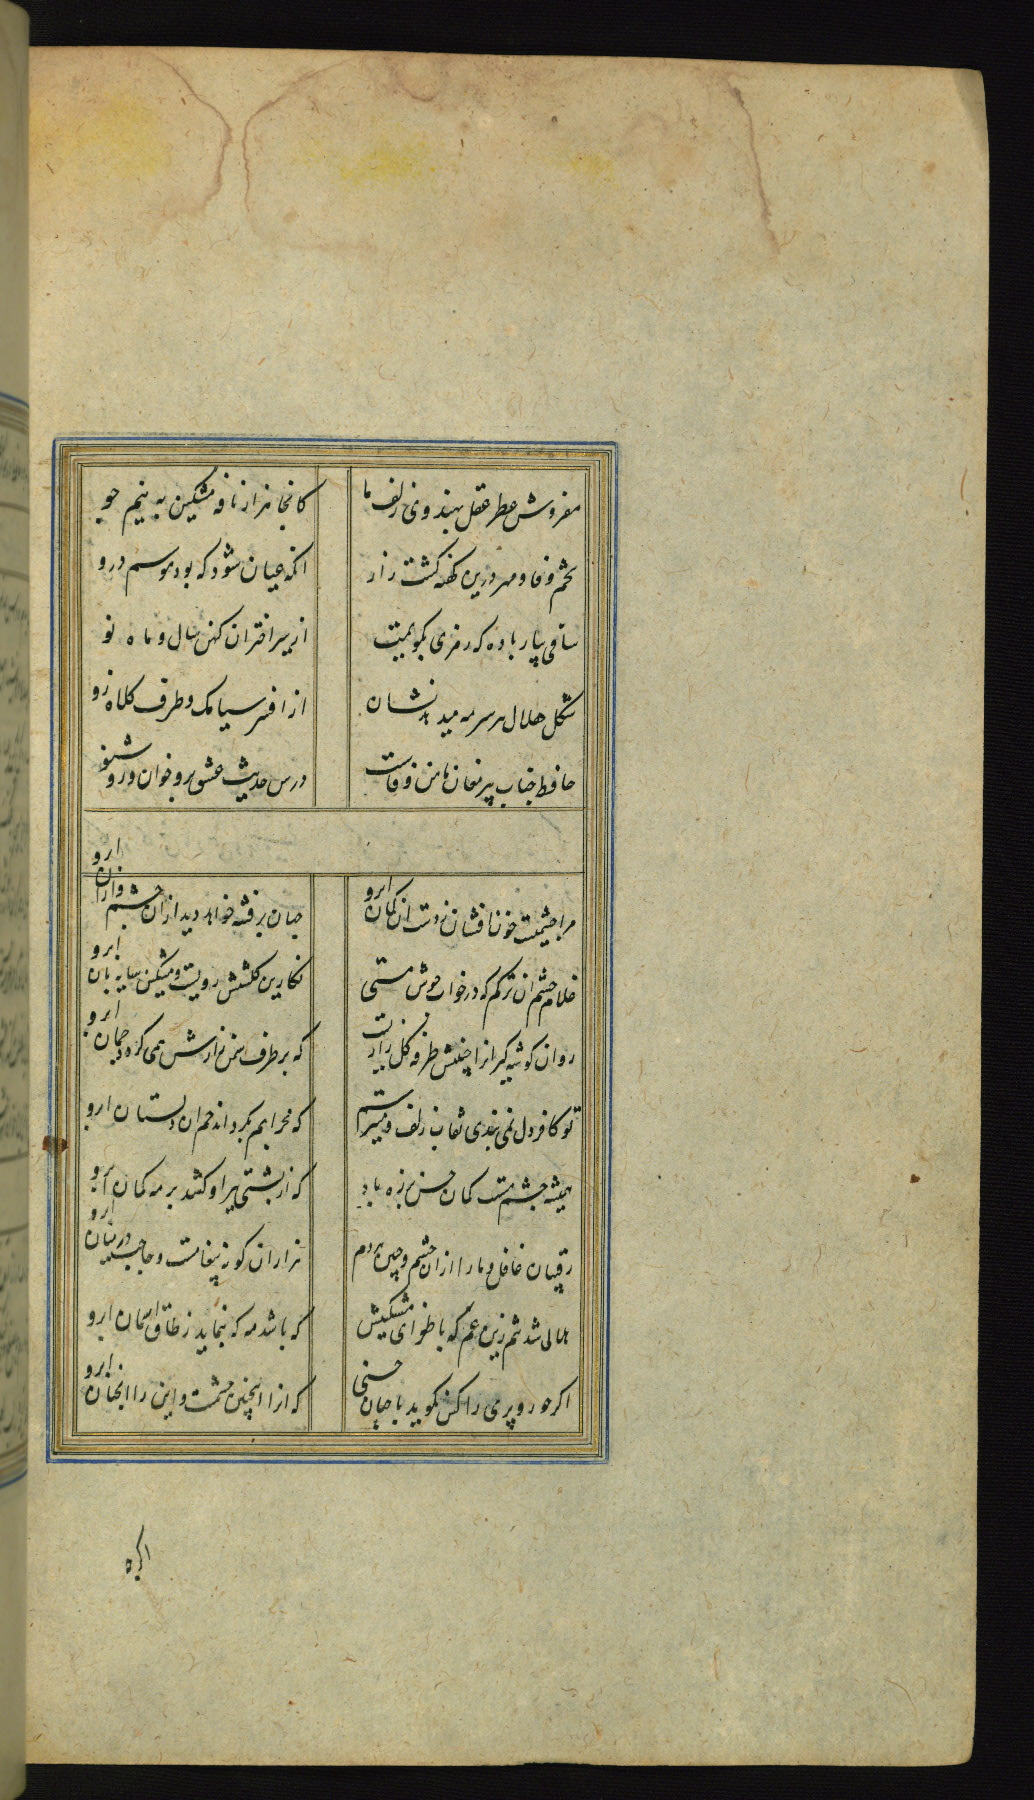 مفروش عطر عقل بهندوی زلف ما کانجا هزار نافه مشکین به نیم جو
تخم وفا و مهر درین کهنه کشت زار انکه عیان شود که بود موسم درو
ساقی بیار باده که رمزی بکویمت از سر اختران کهن سال و ماه نو
شکل هلال هر سر مه میدهد نشان از افسر سیامک و طرف کلاه زو
حافظ جناب پیر مغان مامن وفاست درس حدیث عشق برو خوان و زو شنو
مرا چشمیست خون افشان ز دست ان کمان ابرو جهان پر فتنه خواهد دید از ان چشم و ازان ابرو
غلام چشم ان ترکم که در خواب خوش مستی نکارین کلشنش رویست و مشکین سایه بان ابرو
روان کوشه کیرانرا جبینش طرفه کلزاریست که بر طرف سمن زارش همی کردد چمان ابرو
تو کافر دل نمی بندی نقاب زلف و میترسم که محرابم بکرداند خم ان دلستان ابرو
همیشه چشم مستت کمان حسن بزه باد که از پشتی تیر او کشد بر مه کمان ابرو
رقیبان غافل و ما را ازان چشم و جبین هر دم هزاران کونه پیغامست و حاجب در میان ابرو
هلالی شد تنم زین غم که با طغرای مشکینش که باشد مه که بنماید ز طاق اسمان ابرو
اکر حور و پری را کس نکوید با چنان حسنی که انرا اینچنین چشمست و این را انچنان ابرو
اکره